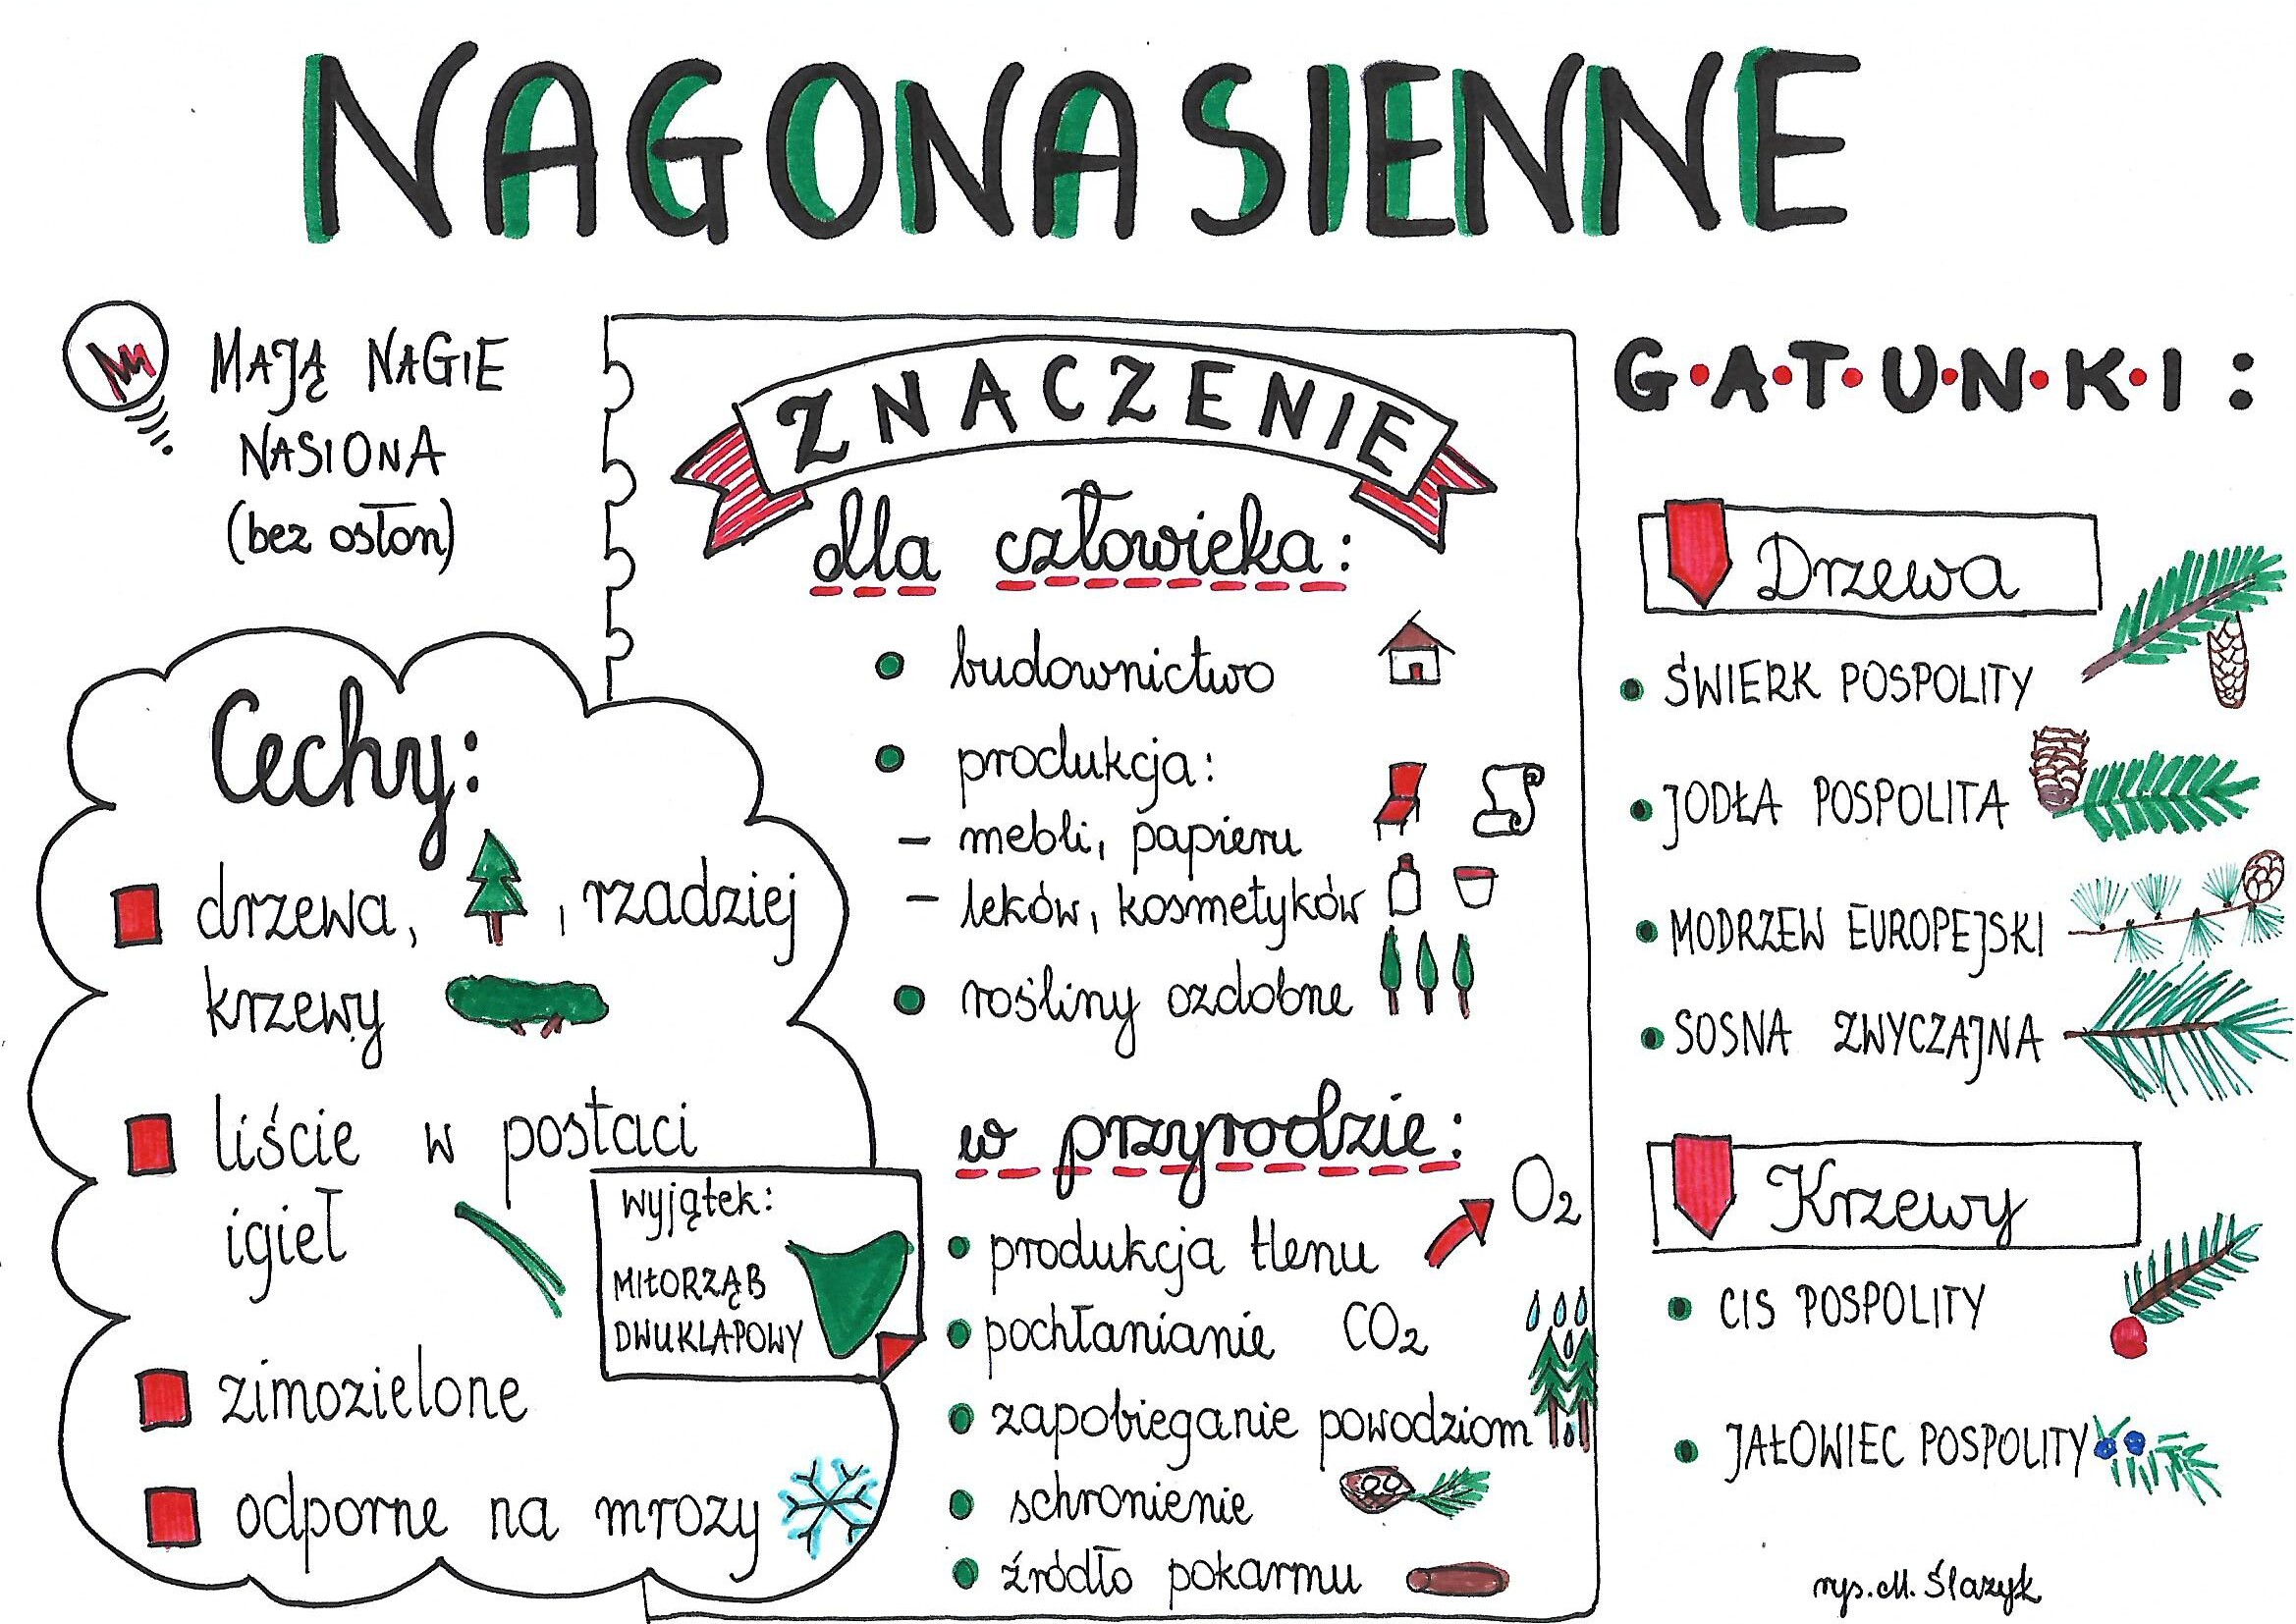 NAGONASIENNE
MAJĄ NAGIE
NASIONA
(bez osłon)
Cechy:
drzewa, , rzadziej
krzewy
liście w postaci
igieł
wyjątek:
MIŁORZĄB
DWUKLAPOWY
zimozielone
odporne na mrozy
ZNACZENIE
dla człowieka:
budownictwo
produkcja:
- mebli, papieru
- leków, kosmetyków
rośliny ozdobne
w przyrodzie:
produkcja tlenu O2
pochłanianie CO2
zapobieganie powodziom
schronienie
źródło pokarmu
G·A·T·U·N·K·I:
Drzewa
ŚWIERK POSPOLITY
JODŁA POSPOLITA
MODRZEW EUROPEJSKI
SOSNA ZWYCZAJNA
Krzewy
CIS POSPOLITY
JAŁOWIEC POSPOLITY
rys. M. Ślazyk